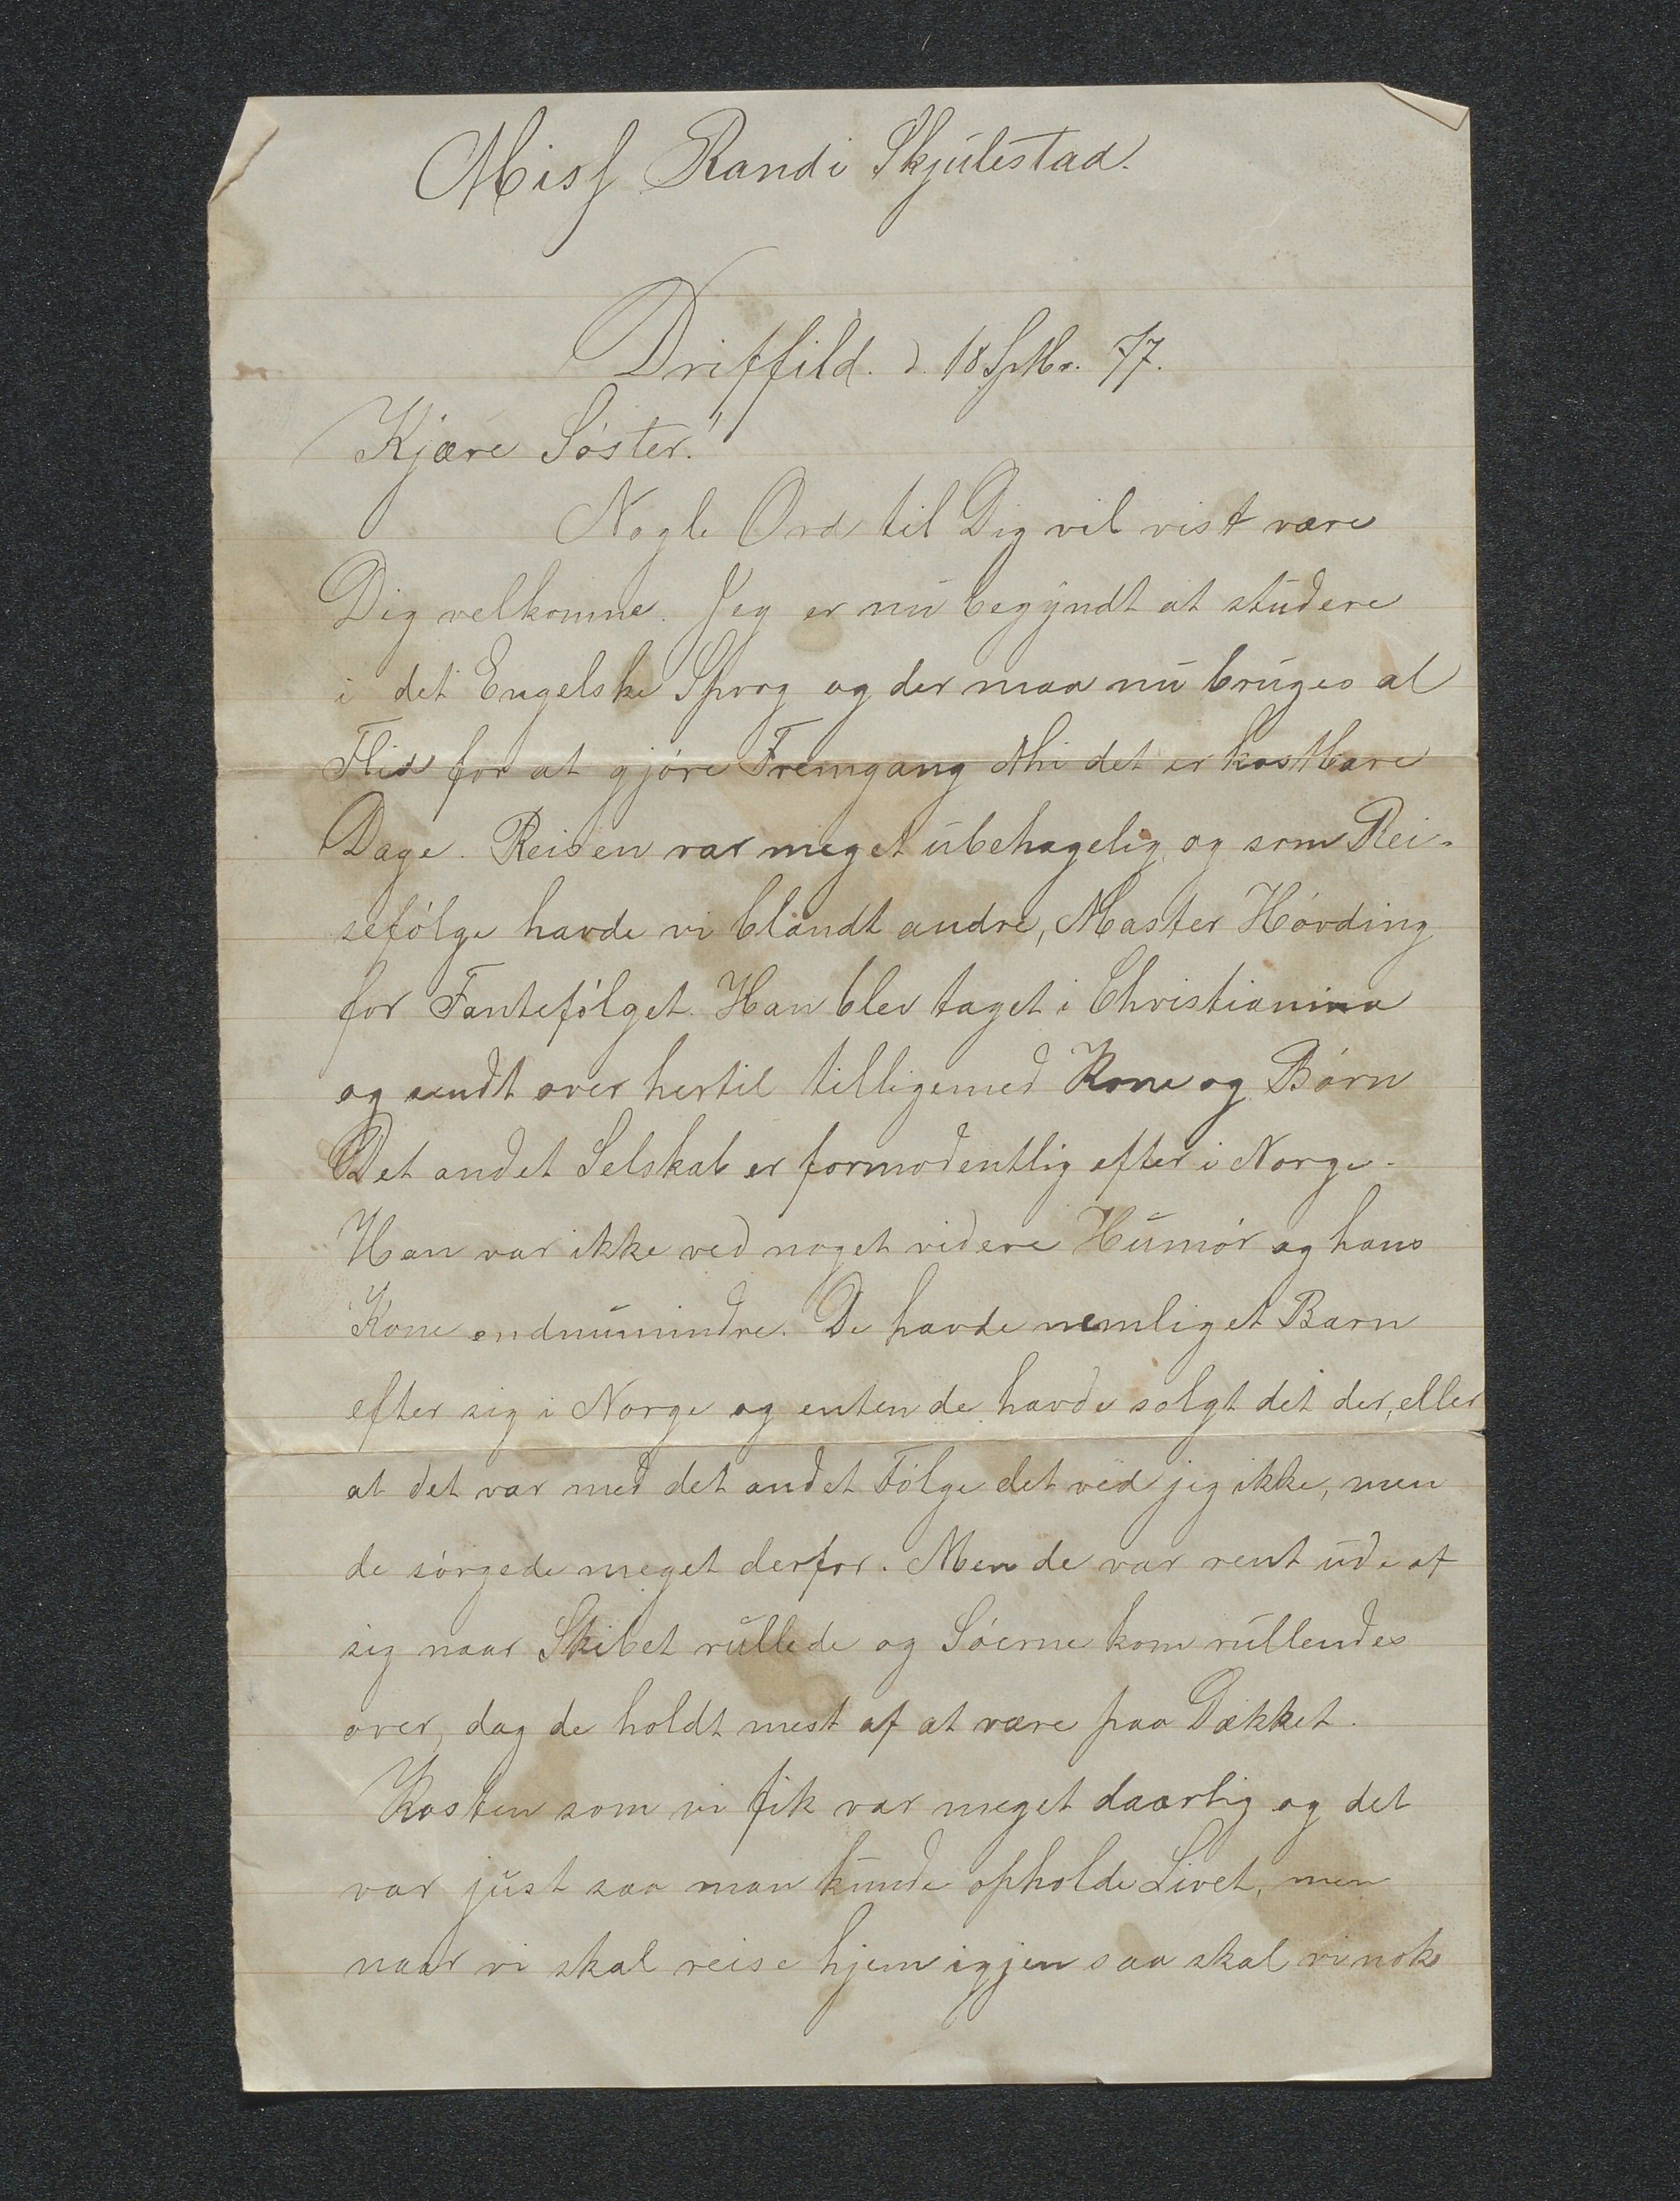 Miss Randi Skjulestad.
Driffild. d. 18 Sptbr. 77.
Kjære Söster!
Nogle Ord til Dig vil vist være
Dig velkomne. Jeg er nu begyndt at studere
i det Engelske Sprog og der maa nu bruges al
Flid for at gjöre Fremgang thi det er kostbare
Dage. Reisen var meget ubehagelig og som Rei-
sefölge havde vi blandt andre, Master Hövding
for Fantefölget. Han blev taget i Christianina
og sendt over hertil tilligemed Kone og Börn
Det andet Selskab er formodentlig efter i Norge.
Han var ikke ved noget videre Humör og hans
Kone endnu mindre. De havde nemlig et Barn
efter sig i Norge og enten de havde solgt det der, eller
at det var med det andet Fölge det ved jeg ikke, men
de sörgede meget derfor. Men de var rent ude af
sig naar Skibet rullede og Söerne kom rullendes
over, dog de holdt mest af at være paa Dækket.
Kosten som vi fik var meget daarlig og det
var just saa man kunde opholde Livet, men
naar vi skal reise hjem igjen saa skal vi nok